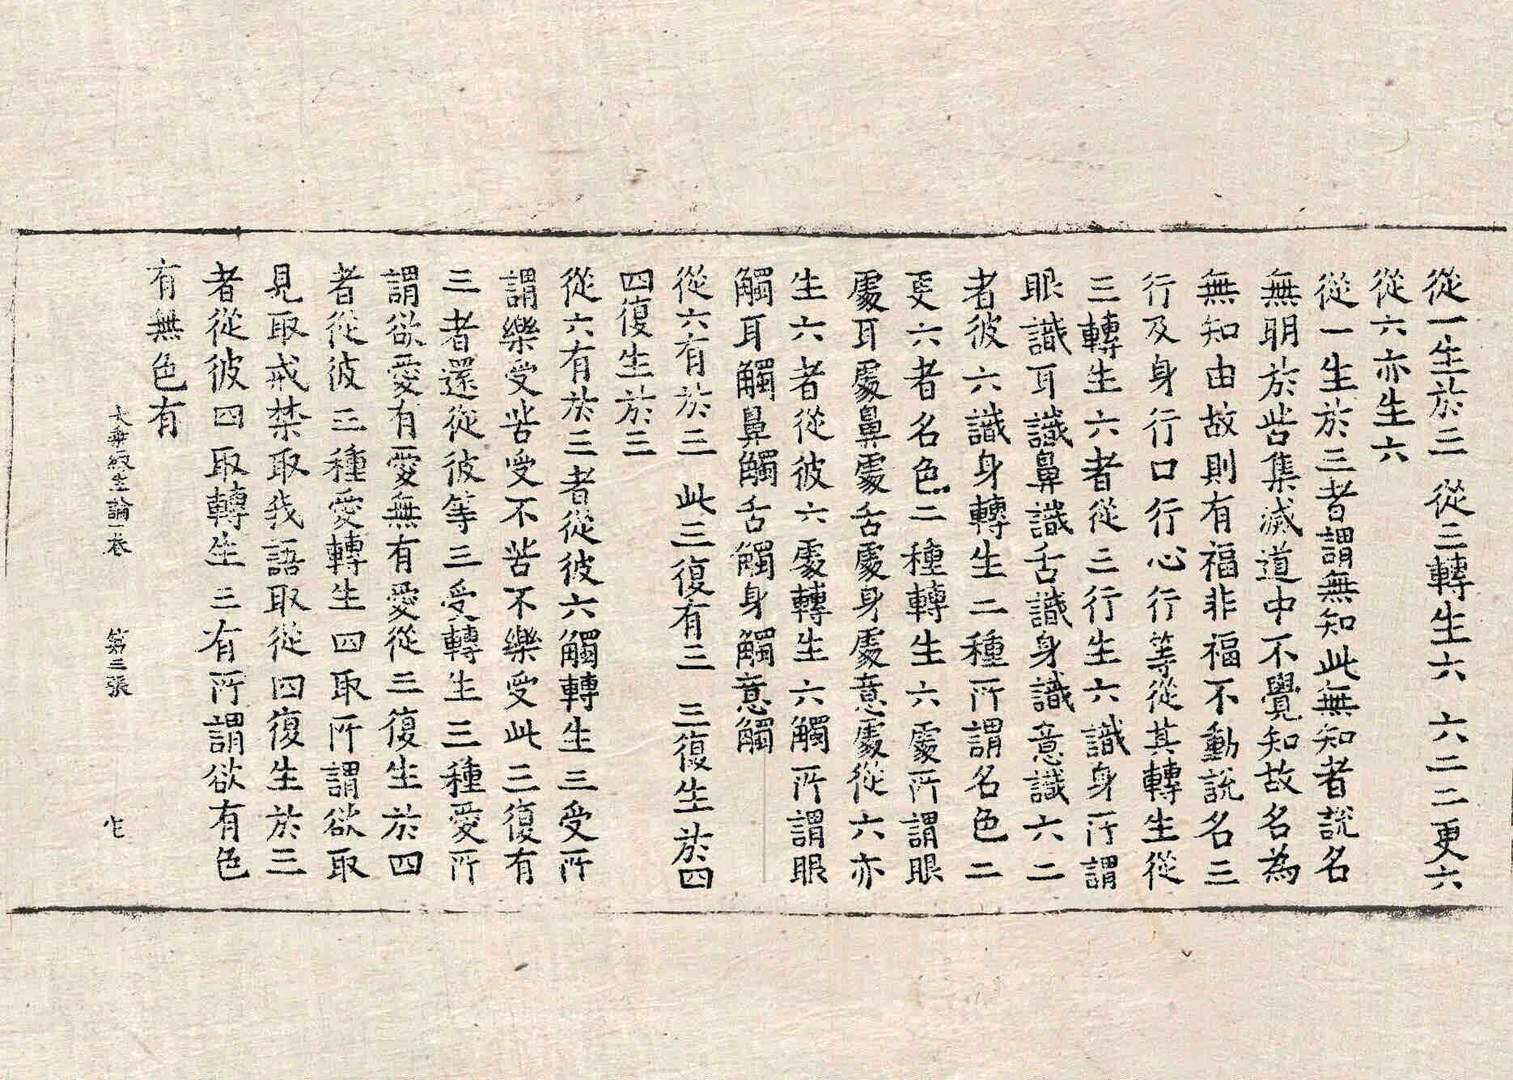 從一生於三　從三轉生六　六二二更六
從六亦生六
從一生於三者謂無知此無知者説名
無明於苦集滅道中不覺知故名為
無知由故則有福非福不動説名三
行及身行口行心行等從其轉生從
三轉生六者從三行生六識身所謂
眼識耳識鼻識舌識身識意識六二
者彼六識身轉生二種所謂名色二
更六者名色二種轉生六處所謂眼
處耳處鼻處舌處身處意處從六亦
生六者從彼六處轉生六觸所謂眼
觸耳觸鼻觸舌觸身觸意觸
從六有於三　此三復有三　三復生於四
四復生於三
從六有於三者從彼六觸轉生三受所
謂樂受苦受不苦不樂受此三復有
三者還從彼等三受轉生三種愛所
謂欲愛有愛無有愛從三復生於四
者從彼三種愛轉生四取所謂欲取
見取戒禁取我語取從四復生於三
者從彼四取轉生三有所謂欲有色
有無色有
大乘緣生論一卷　第三張